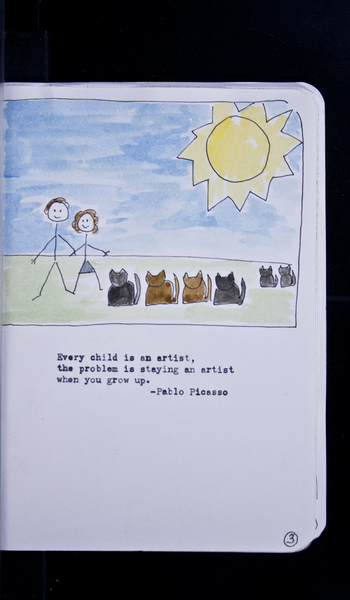 Every child is an artist,
the problem is staying an artist
when you grow up.
-Pablo Picasso
3